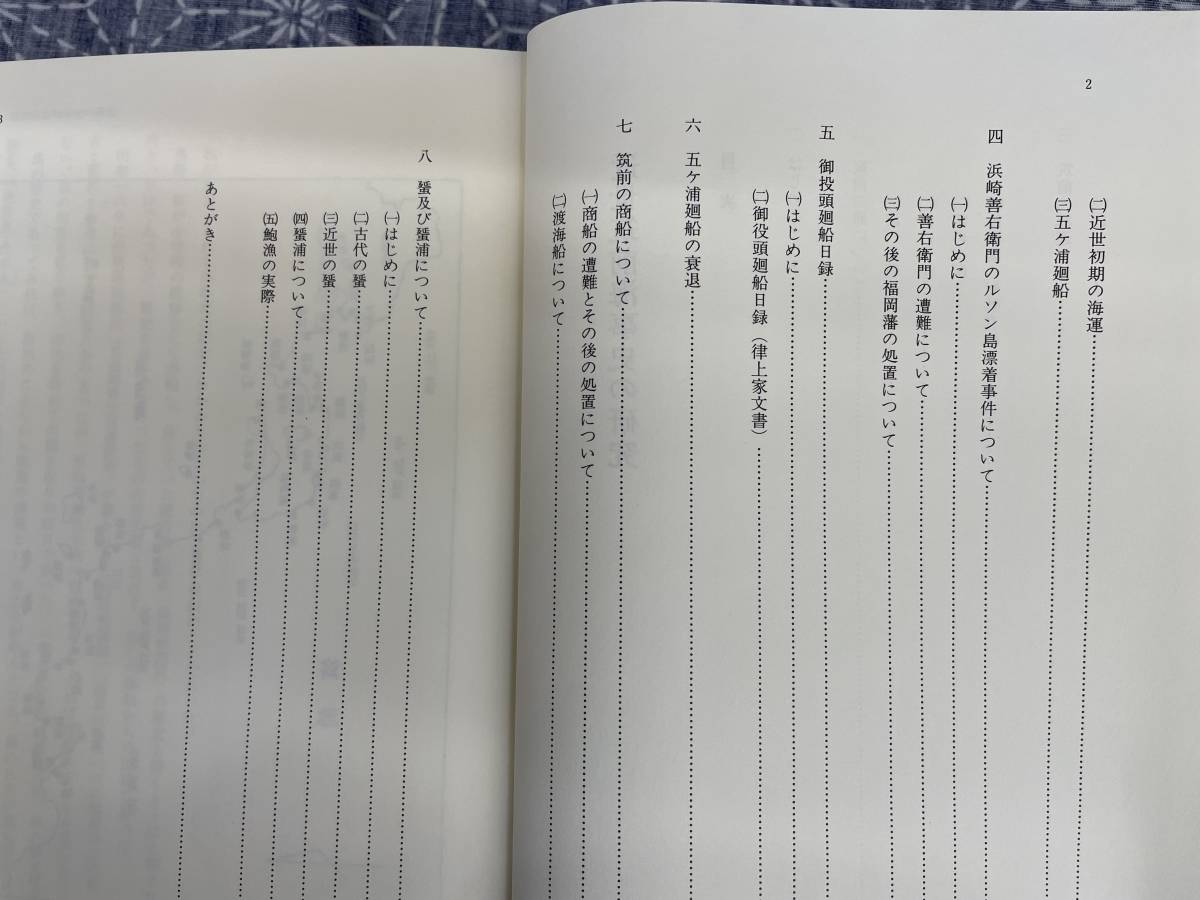 2
㈡近世初期の海運
㈢五ケ浦廻船
四 浜崎善右衛門のルソン島漂着事件について
㈠はじめに
㈡善右衛門の遭難について
㈢その後の福岡藩の処置について
五 御投頭廻船日録
㈠はじめに
㈡御役頭廻船日録（律上家文書）
六 五ケ浦廻船の衰退
七 筑前の商船について
㈠商船の遭難とその後の処置について
㈡渡海船について
3
八 蜑及び蜑浦について
㈠はじめに
㈡古代の蜑
㈢近世の蜑
㈣蜑浦について
㈤鮑漁の実際
あとがき